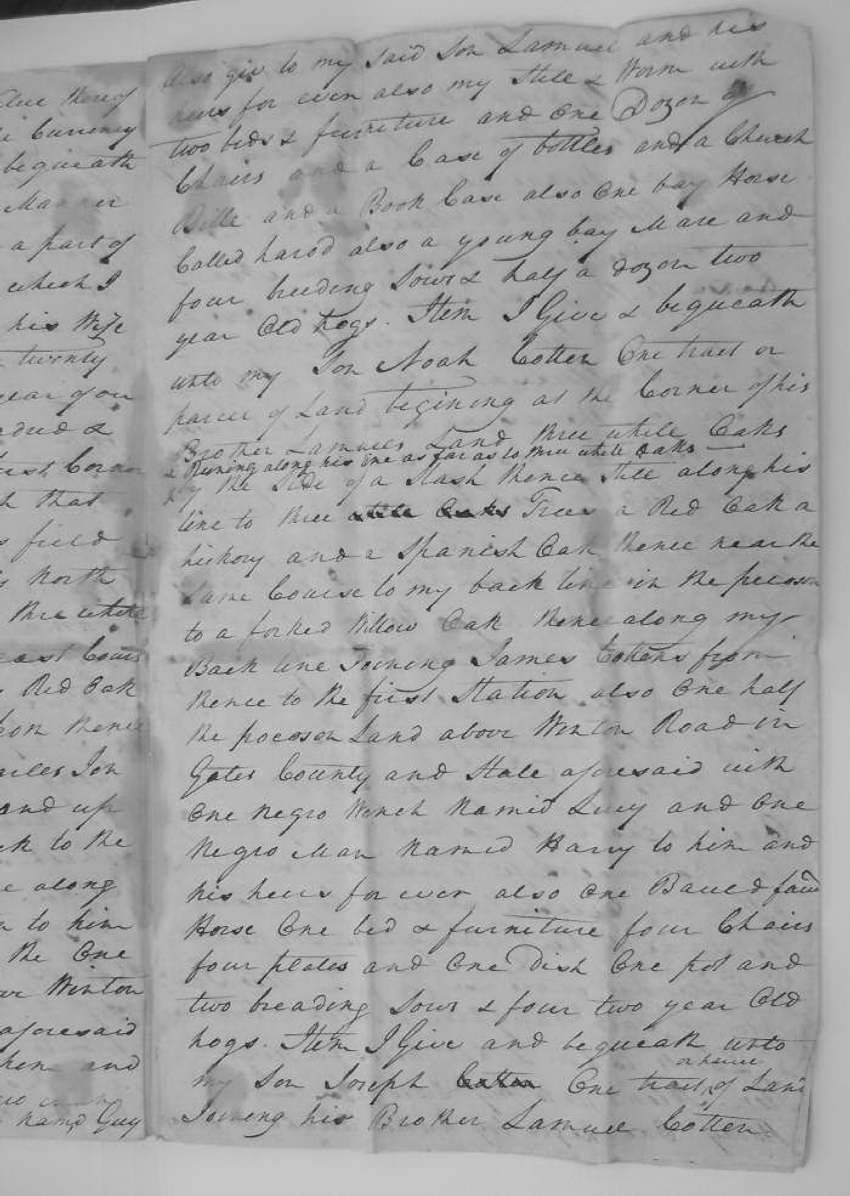 alue there of
Currency
bequeath
Manner
a part of
which I
his Wife
twenty
year of our
&
first Corner
that
field
North
three white
east Cours
Red Oak
thence
Son
and up
to the
along
to him
the One
Winton
aforesaid
and
namd Guy
Also giv to my said Son Lamuel and his
heirs for ever also my Still & Worm with
two beds & furniture and One Dozon of
Chairs and a Case of bottles and a Church
Bille and a Book Case also One bay Horse
Called harod also a young bay Mare and
four breeding Sows & half a dozon two
year Old hogs. Item I Give & bequeath
unto my Son Noah Cotten One tract or
parcel of Land begining at the Corner of his
Brother Lamuels Land three white Oaks
& Runing along his line as far as to three white Oaks
by the Side of a Slash thence still along his
line to three white Oaks Trees a Red Oak a
hickory and a Spanish Oak thence near the
Same Course to my back line in the pocoson
to a forked Willow Oak thence along my
Back line Joining James Cottens from
thence to the first Station also One half
the pocoson Land above Winton Road in
Gates County and State aforesaid with
One negro Wench Named Lucy and One
Negro Man Named Harry to him and
his heirs for ever also One Bauld faced
Horse One bed & furniture four Chairs
four plates and One dish One pot and
two breading Sows & four two year Old
hogs. Item I Give and bequeath unto
my Son Joseph Cotten One tract of Land
Joining his Brother Lamuel Cotten